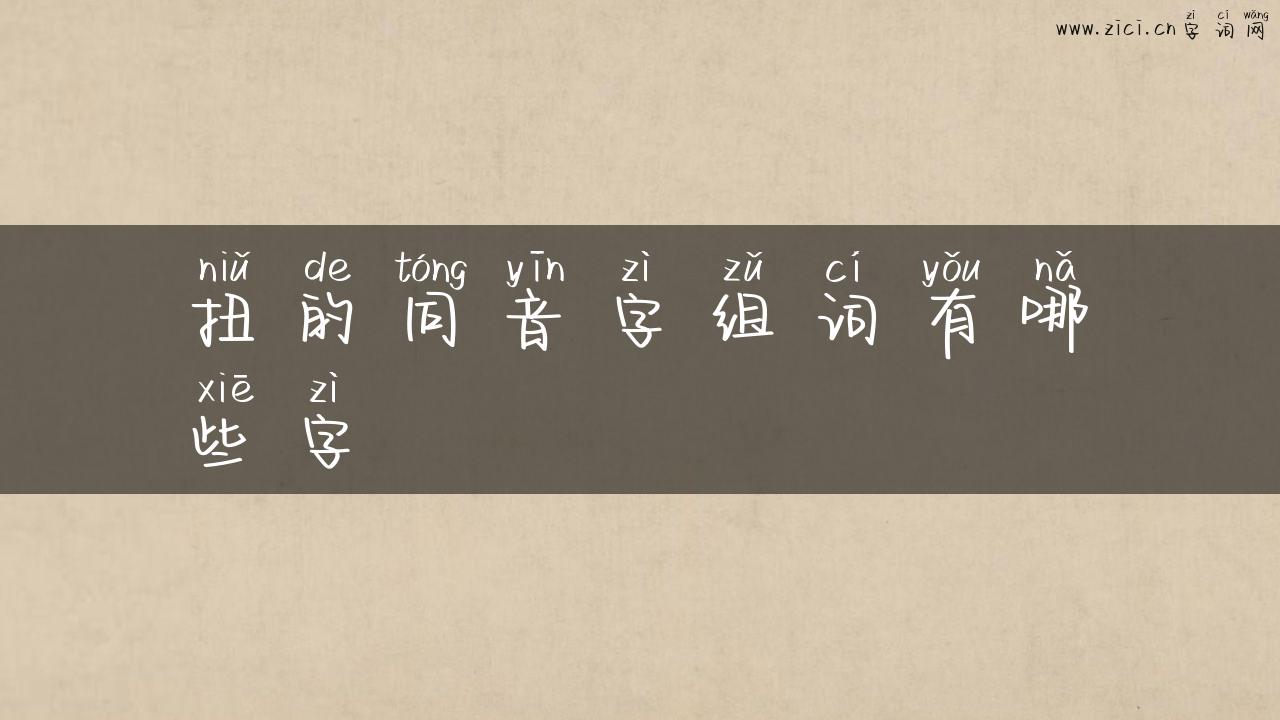 zì cí wǎng
www.zici.cn 字 词 网
niǔ de tóng yīn zì zǔ cí yǒu nǎ
扭 的 同 音 字 组 词 有 哪
xiē zì
些 字